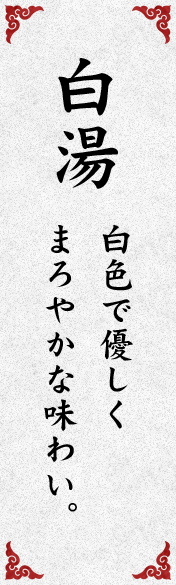 白湯
白色で優しく
まろやかな味わい。